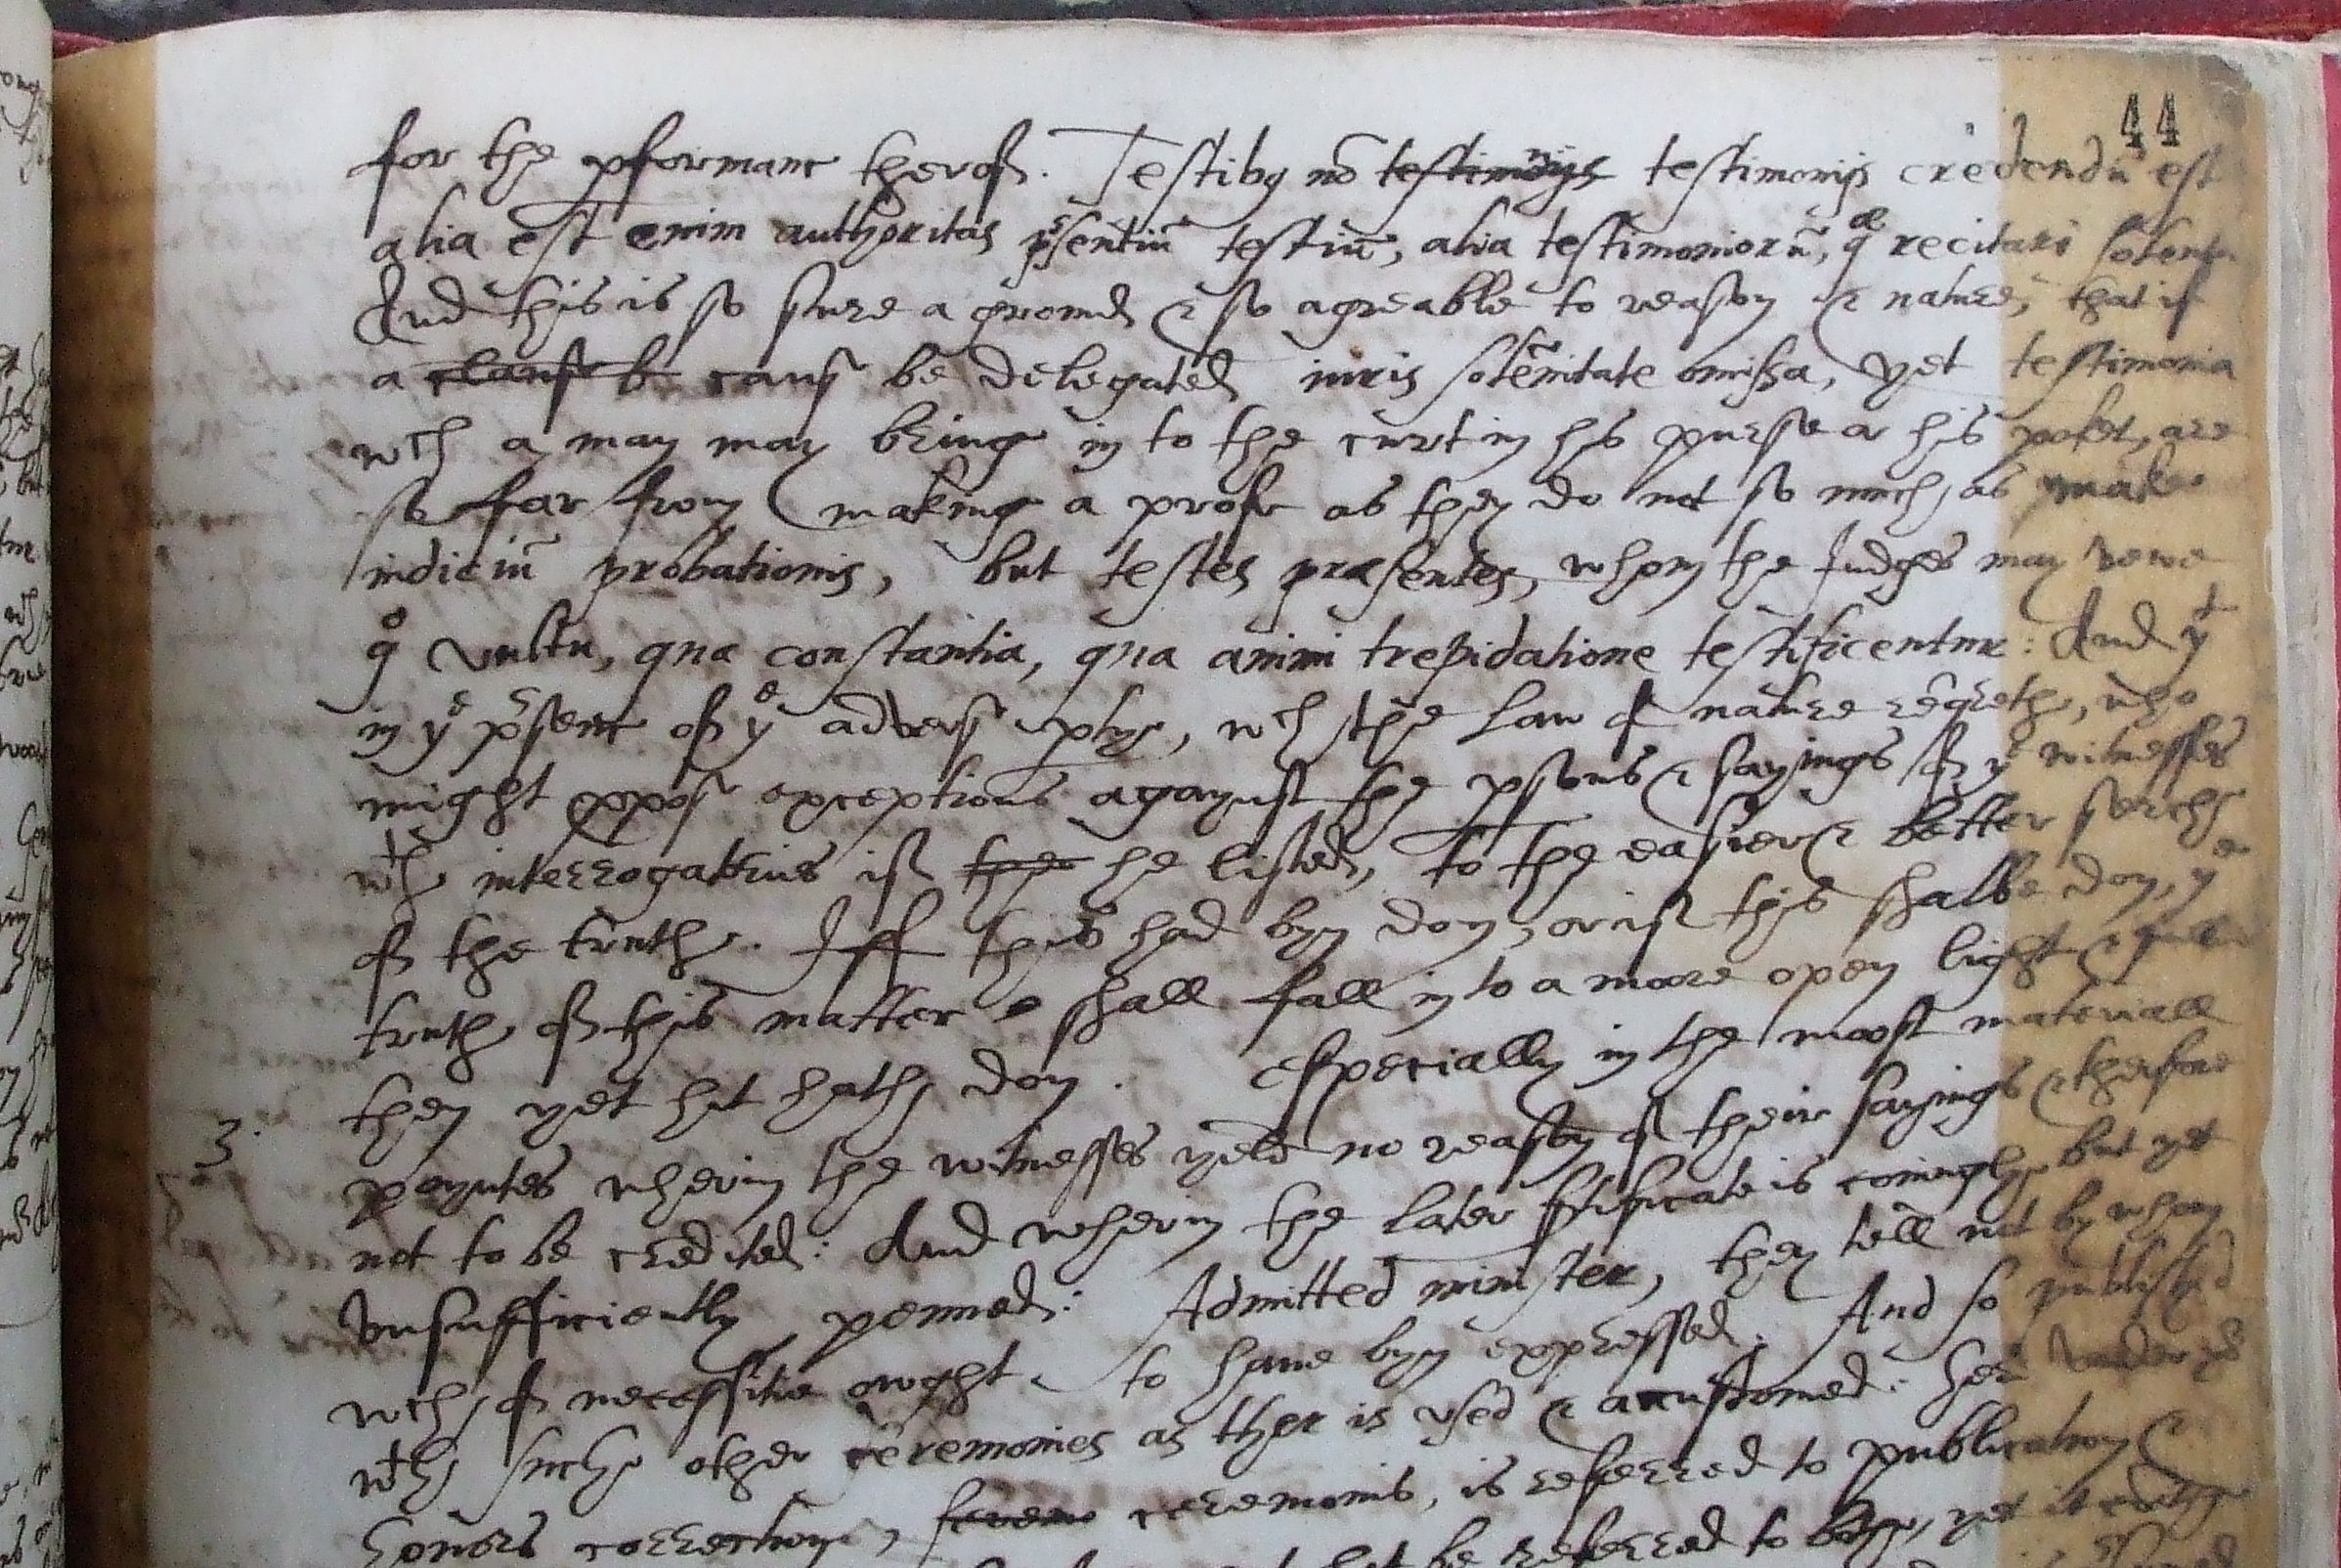 44
for the pformanc therof. Testibꝯ nō testimonijs testimonijs credendū est
alia est enim authoritas psentiū testiū, alia testimoniorū, q̃ recitari solent
And this is so sure a grownd & so agreable to reason & nature, that if
a claus b caus be delegated iuris solēnitate omissa, yet testimonia
wch a man may bring in to the curt in his purse or his poket, are
so far from making a profe as they do not so much as make
indiciū probationis, but testes præsentes, whom the Judges may vewe
qo vultu, qua constantia, qua animi trepidatione testificentur: And yt
in ye psenc of ye advers ptys, wch the law of nature reqreth, who
might oppos exceptions agaynst the psons & sayings of ye witnesses
wth interrogatories if the he listed, to the easier & better serche
of the truth. Iff this had byn don, or if this shalbe don, ye
truth of this matter shall fall in to a more open light
then yet hit hath don. Especially in the moost materiall
3. poyntes wherin the witnesses yeld no reason of their sayings & therfore
not to be credited: And wherin the later ctificate is coningly but yet
vnsufficiently penned: Admitted minister, they tell not by whom
wch of necessitie owght to have byn expressed: And so publish'd
wth suche other ceremonies as ther is vsed & accustomed: her vnder yor
honors correction, ceremonis, is referred to publication &
be referred to yet it